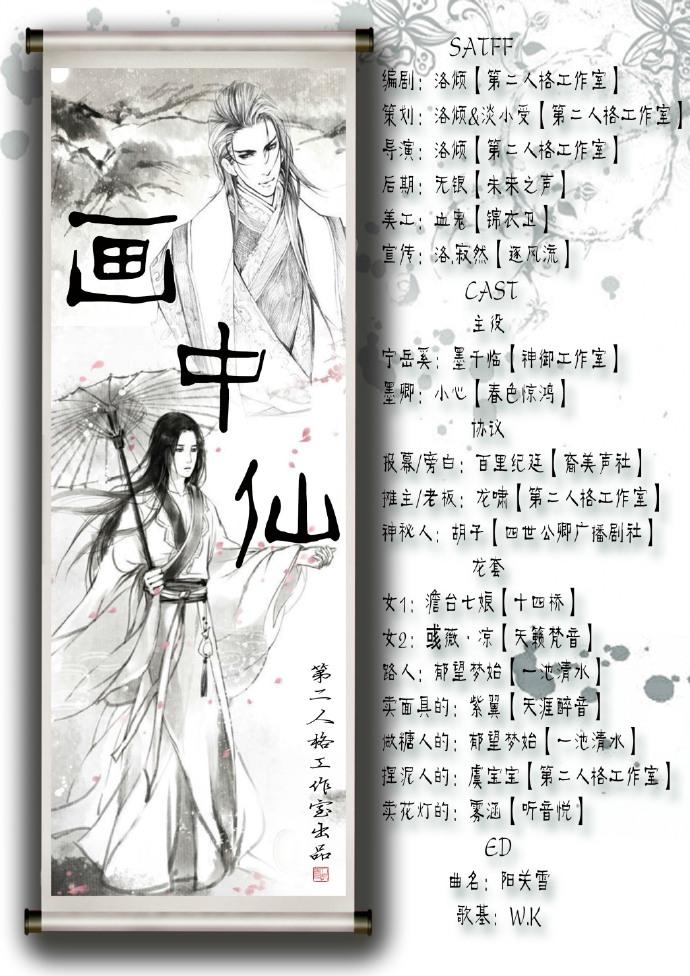 画中仙
第二人格工作室出品
SATFF
编剧：洛烦【第二人格工作室】
策划：洛烦&淡小受【第二人格工作室】
导演：洛烦【第二人格工作室】
后期：无银【未来之声】
美工：血鬼【锦衣卫】
宣传：洛,寂然【逐风流】
CAST
主役
宁岳奚：墨千临【神御工作室】
墨卿：小心【春色惊鸿】
协议
报幕/旁白：百里纪廷【裔美声社】
摊主/老板：龙啸【第二人格工作室】
神秘人：胡子【四世公卿广播剧社】
龙套
女1：澹台七娘【十四桥】
女2：彧薇·凉【天籁梵音】
路人：郁望梦始【一池清水】
卖面具的：紫翼【天涯醉音】
做糖人的：郁望梦始【一池清水】
捏泥人的：虞宝宝【第二人格工作室】
卖花灯的：雾涵【听音悦】
ED
曲名：阳关雪
歌基：W.K